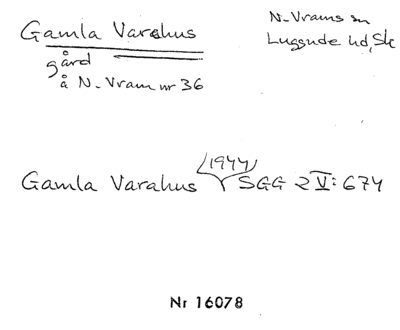 Gamla Varahus
gård
å N. Vram nr 36
N. Vrams sn
Luggude hd, Sk
(1944)
Gamla Varahus SGG 2 V: 674
Nr 16078